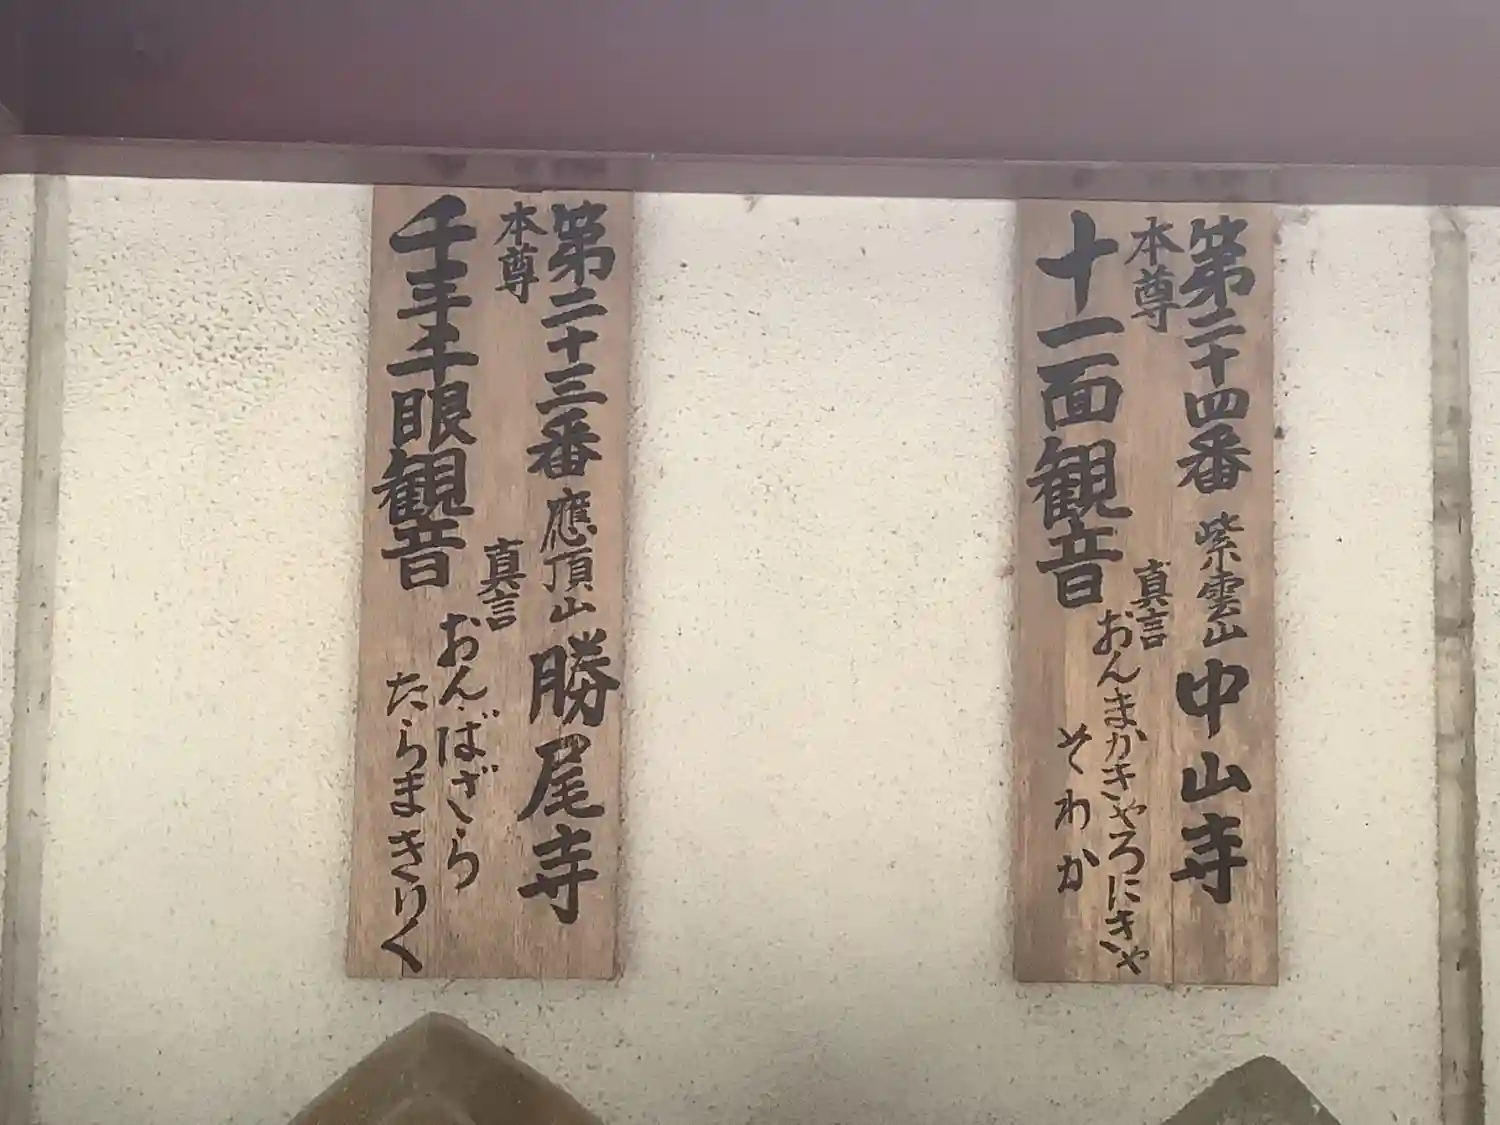 第二十四番 紫雲山 中山寺
本尊 十一面観音
真言 おんまかきゃろにきゃ
そわか
第二十三番 應頂山 勝尾寺
本尊 千手千眼観音
真言 おん.ばざら
たらまきりく